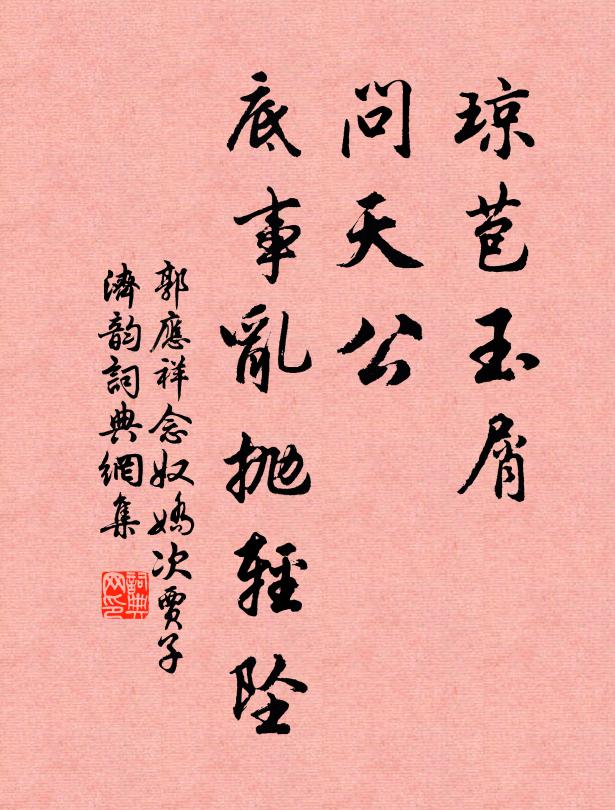 琼苞玉屑
問天公
底事亂抛輕墜
郭應祥念奴嬌次賈子
濟韵詞典網集
詞典网印